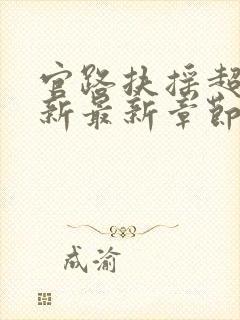 官路扶摇超
新最新章节
成渝